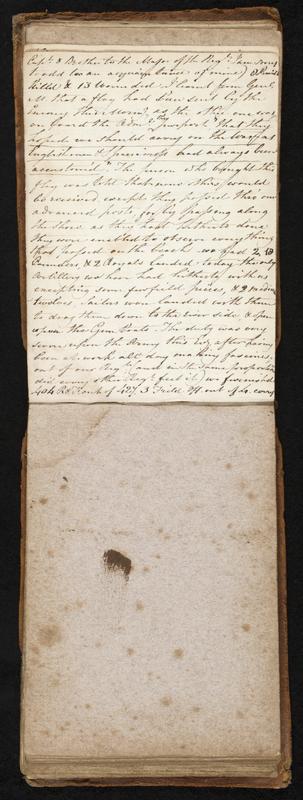 Capt & Brother to the Major of the Regt. I am sorry
to add too an acquaintance of mine)
killed & 13 wounded. I learnt from Genl.
M that a flag had been sent by the
Enemy this Morng. as the other one was
on board the Adml. purport that they
hoped we should carry on the war as
Englishmen & Frenchmen had always been
accustomed. The person who brought this
flag was told that none others would
be received except they passed thro' our
advanced posts, for by passing along
the shore as they had hitherto done
they were enabled to observe every thing
that passed on the beach. We had 2, 10
Pounders, & 2 Royals landed today the only
Artillery we have had hitherto with us
excepting some fieldpieces, & 2 medium
twelves. Sailors were landed with them
to drag them down to the river side & open
upon the Gun Boats. The duty was very
severe upon the Army this day after having
been at work all day making fascines,
out of our Regt. (and in the same proportion
did every other Regt. feel it) we furnished
404 Rk & File of 427, 3 Field Off. out of 4. every